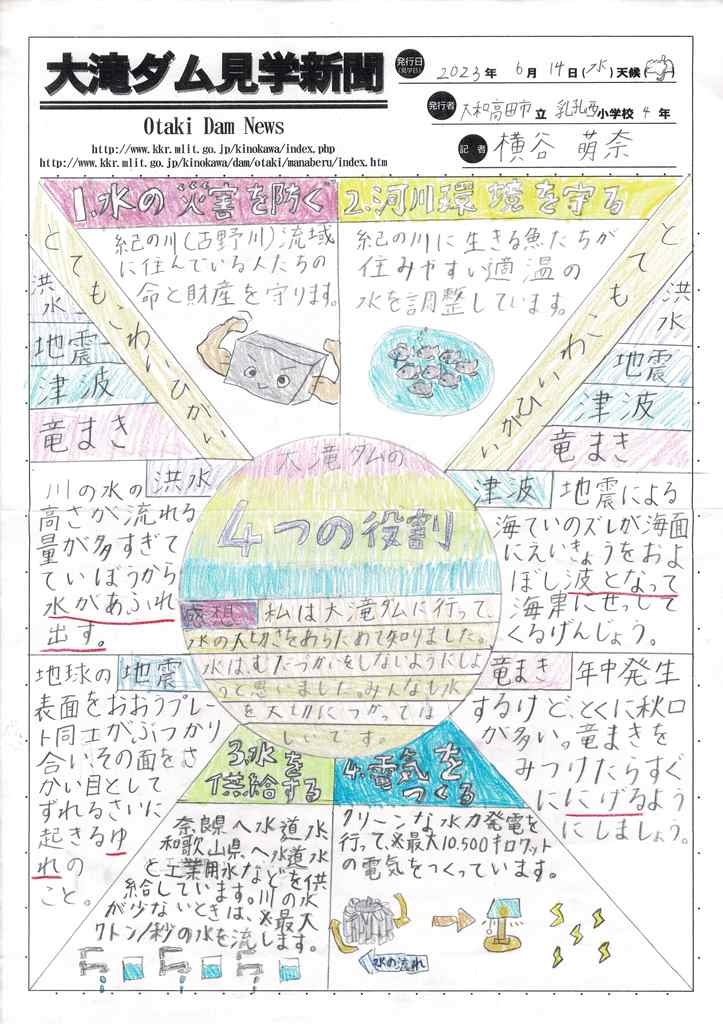 大滝ダム見学新聞
Otaki Dam News
http://www.kkr.mlit.go.jp/kinokawa/index.php
http://www.kkr.mlit.go.jp/kinokawa/dam/otaki/manaberu/index.htm
発行日
(見学日)
2023年 6月 14日(水)天候( )
発行者
大和高田市立 小学校 4年
記者
横谷 萌奈
1.水の災害を防ぐ
紀の川(吉野川)流域
に住んでいる人たちの
命と財産を守ります。
2.河川環境を守る
紀の川に生きる魚たちが
住みやすい適温の
水を調整しています。
とてもこわいひがい
洪水
地震
津波
竜まき
とてもこわいひがい
洪水
地震
津波
竜まき
大滝ダムの
4つの役割
感想
私は大滝ダムに行って、
水の大切さをあらためて知りました。
水はむだづかいをしないようにしよ
うと思いました。みんなも水
を大切につかってほ
しいです。
洪水
川の水の
高さが流れる
量が多すぎて
ていぼうから
水があふれ
出す。
地震
地球の
表面をおおうプレー
ト同士がぶつかり
合いその面をさ
かい目として
ずれるさいに
起きるゆ
れの
こと。
津波
地震による
海ていのズレが海面
にえいきょうをおよ
ぼし波となって
海岸にせっして
くるげんじょう。
竜まき
年中発生
するけど、とくに秋口
が多い。竜まきを
みつけたらすぐ
ににげるよう
にしましょう。
3.水を
供給する
奈良県へ水道水
和歌山県へ水道水
と工業用水などを供
給しています。川の水
が少ないときは、※最大
7トン/秒の水を流します。
4.電気を
つくる
クリーンな水力発電を
行って、※最大10.500キロワット
の電気をつくっています。
水の流れ